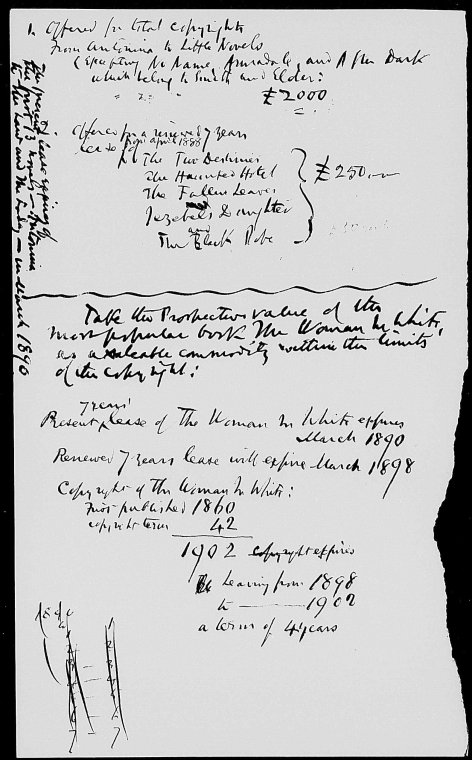 1. Offered for total copyrights
From Antonina to Little Novels
(Excepting No Name, Armadale, and After Dark
which belong to Smith and Elder:
£2000
Offered for a renewed 7 years
lease of from April 1888
The Two Destinies
The Haunted Hotel
The Fallen Leaves
Jezebel's Daughter
and
The Black Robe
£250
The present lease expiring of
the first 13 novels — Antonina
to The Law and The Lady — in March 1890
Take the Prospective value of the
most popular book, The Woman In White,
as a saleable commodity within the limits
of the copyright:
7 years'
Present lease of The Woman In White expires
March 1890
Renewed 7 years lease will expire March 1898
Copyright of The Woman In White:
First published 1860
copyright term 42
1902 copyright expires
Leaving from 1898
to ——— 1902
a term of 4 years
1890